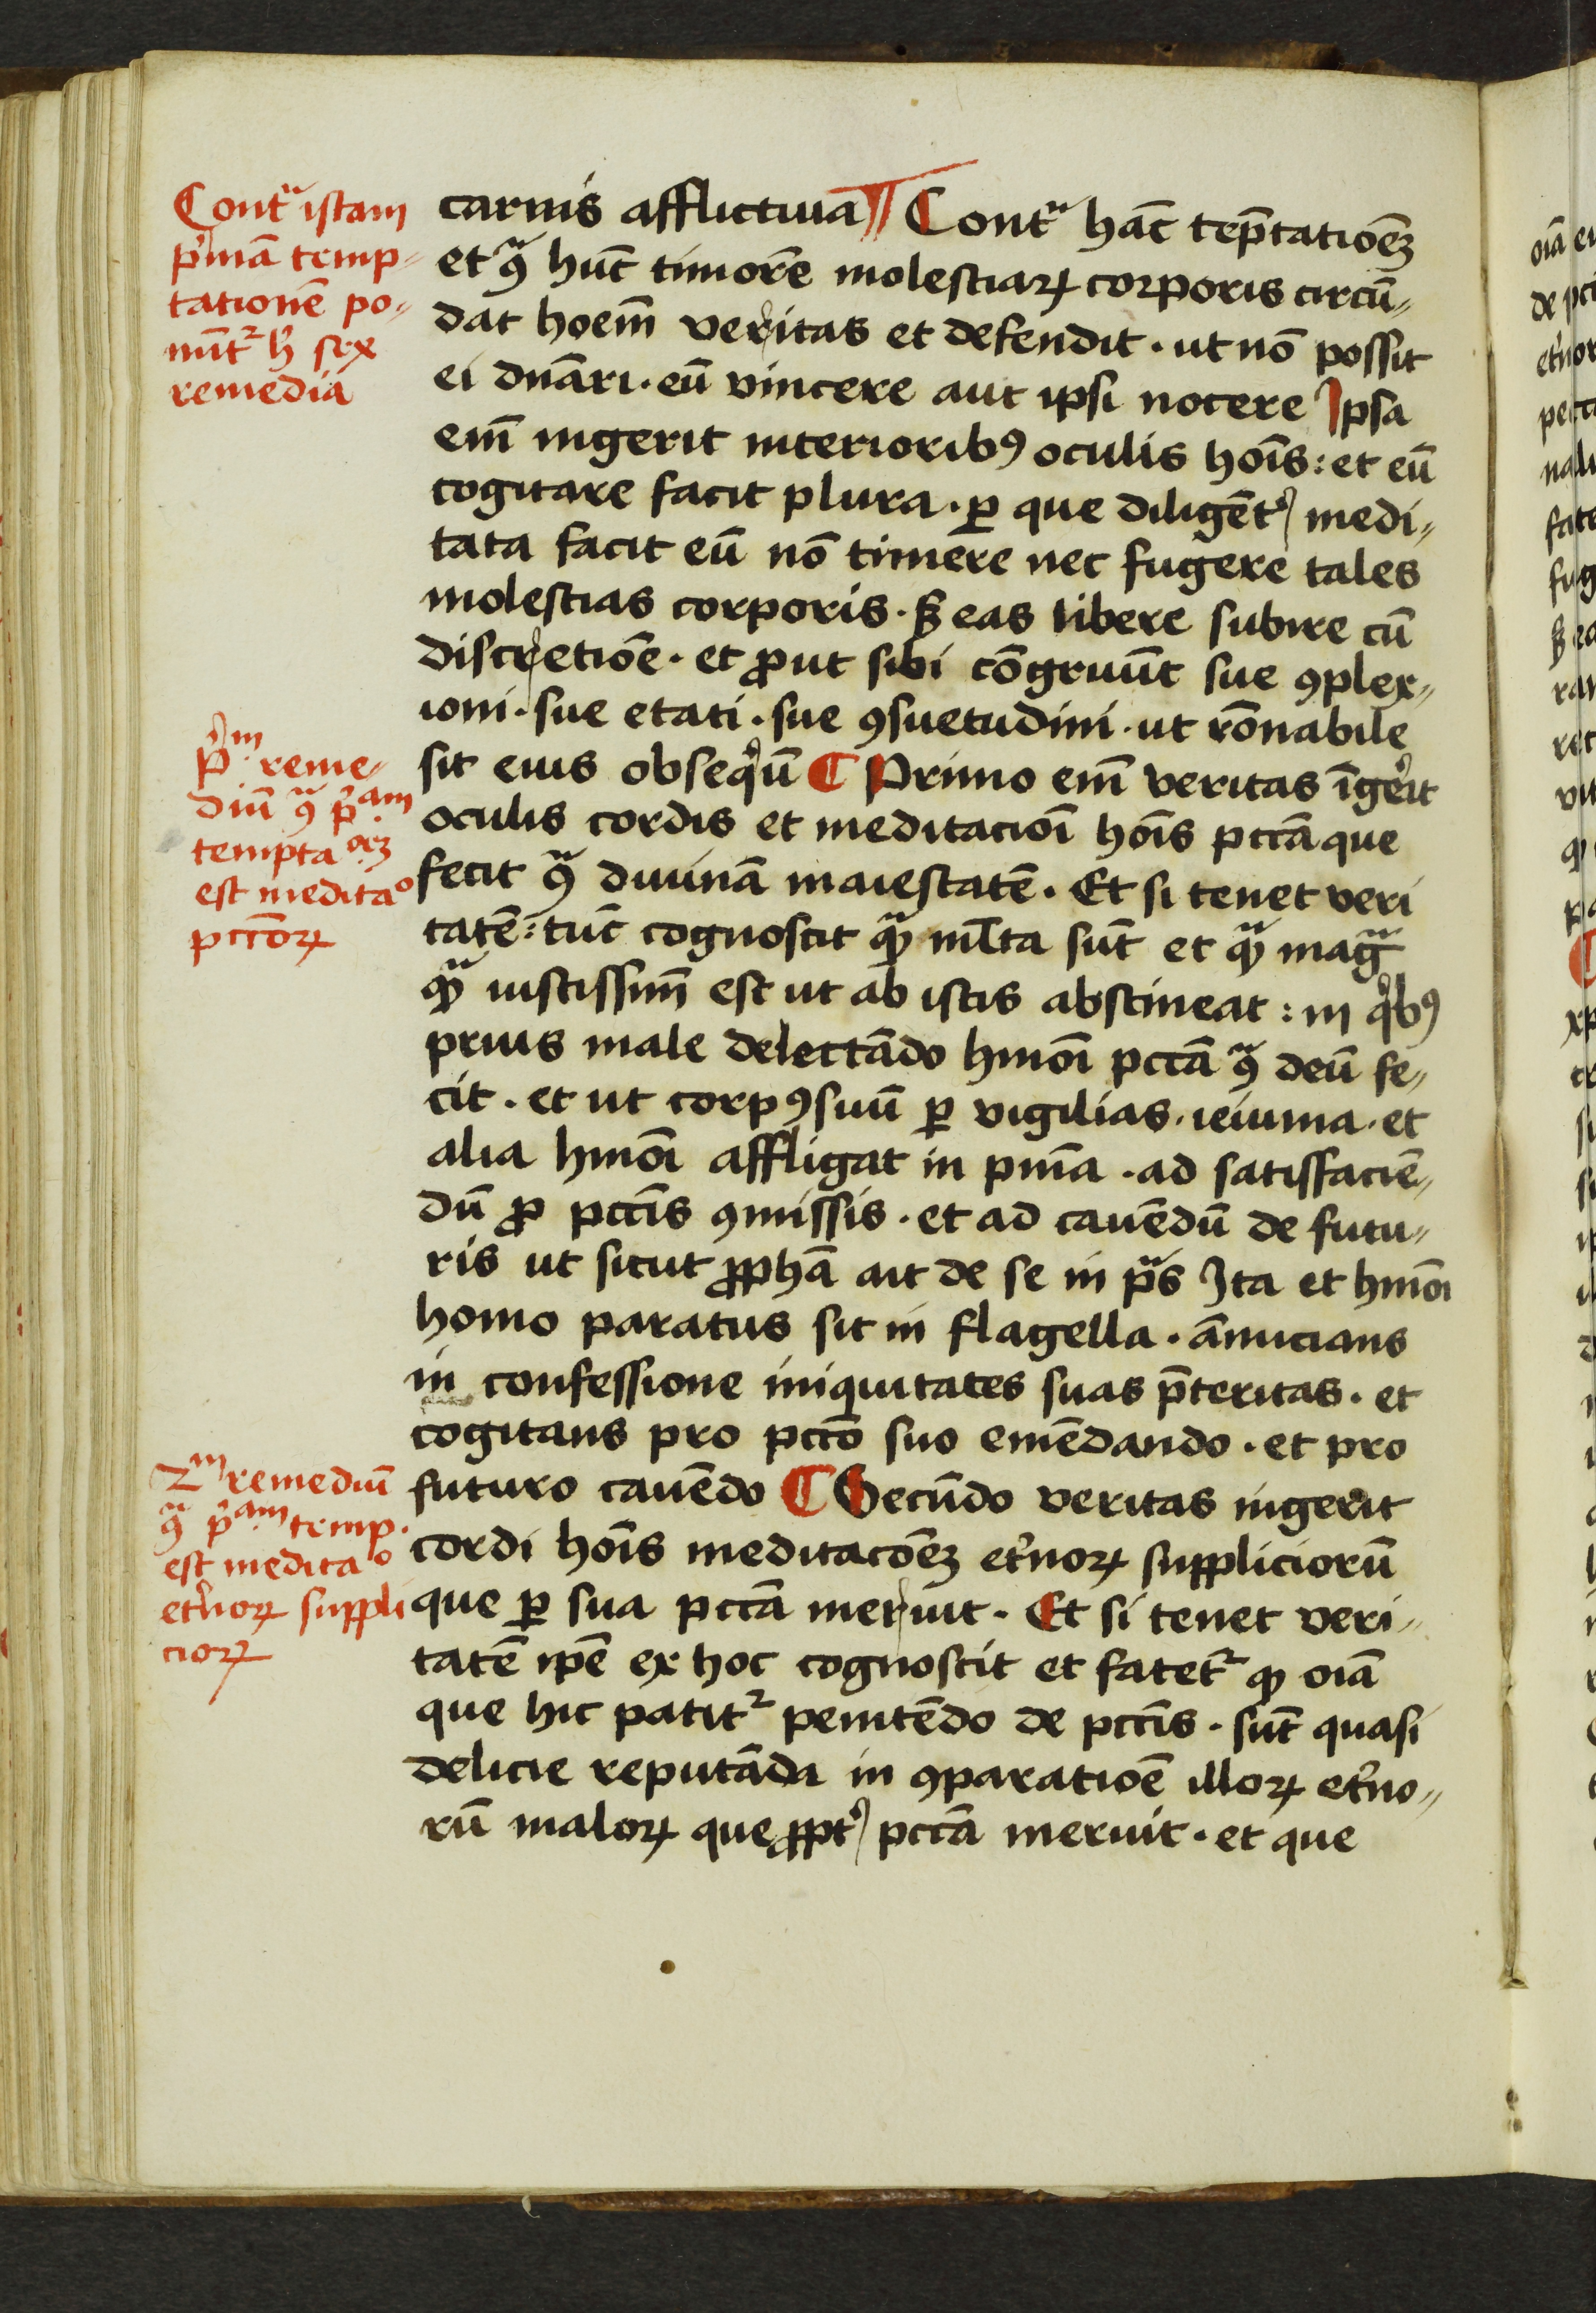 Contᷓ istam
pͥmā temp-
tationē po-
nūtᷣ hͥ sex
remedia
carnis afflictiua ¶ Contᷓ hāc tēptatioēꝫ
et ꝯᷓ hūc timorē molestiaꝝ corporis circū-
dat hoēm veritas et defendit · ut nō possit
ei dn̄ari · eū vincere aut ipsi nocere Ipsa
em̄ ingerit interioribꝰ oculis hoīs : et eū
cogitare facit plura · ꝑ que diligēt᷑ medi-
tata facit eū nō timere nec fugere tales
molestias corporis · sꝫ eas libere subire cū
discretiōe · et ꝓut sibi cōgruūt sue ꝯplex-
ioni · sue etati · sue ꝯsuetudini · ut rōnabile
sit eius obseqͥū ¶ Primo em̄ veritas īgerit
oculis cordis et meditacioī hoīs pctā̄ que
fecit ꝯᷓ diuinā maiestatē · Et si tenet veri
tatē : tūc cognoscit qᷓꝫ ml̄ta sūt et qᷓꝫ magᷓ
qᷓꝫ iustissim̄ est ut ab istis abstineat : in qͥbꝰ
prius male delectādo hmōi pctā ꝯᷓ deū fe-
cit · et ut corpꝰ suū ꝑ vigilias · ieiunia · et
alia hmōi affligat in pn̄ia · ad satisfaciē-
dū ꝓ pctīs ꝯmissis · et ad cauēdū de futu-
ris ut sicut ꝓphā ait de se in pᷓs Ita et hmōi
homo paratus sit in flagella · ānucians
in confessione iniquitates suas p̄teritas · et
cogitans pro pctō suo emēdando · et pro
futuro cauēdo ¶ Secūdo veritas ingerit
cordi hoīs meditacōēꝫ et᷑noꝝ suppliciorū
que ꝑ sua pctā meruit · Et si tenet veri-
tatē ipē ex hoc cognoscit et fatetᷣ qꝫ oīa
que hic patitᷣ penitēdo de pctīs · sūt quasi
delicie reputāda in ꝯparatiōē illoꝝ et᷑no-
rū maloꝝ que ꝓpt᷑ pctā meruit · et que
pͫ reme-
diū ꝯᷓ pᷓͫ
temptaᵒᵉꝫ
est meditaᵒ
pctōꝝ
2ͫ remediū
ꝯᷓ pᷓͫ temp·
est meditaᵒ
et᷑noꝝ suppli
cioꝝ